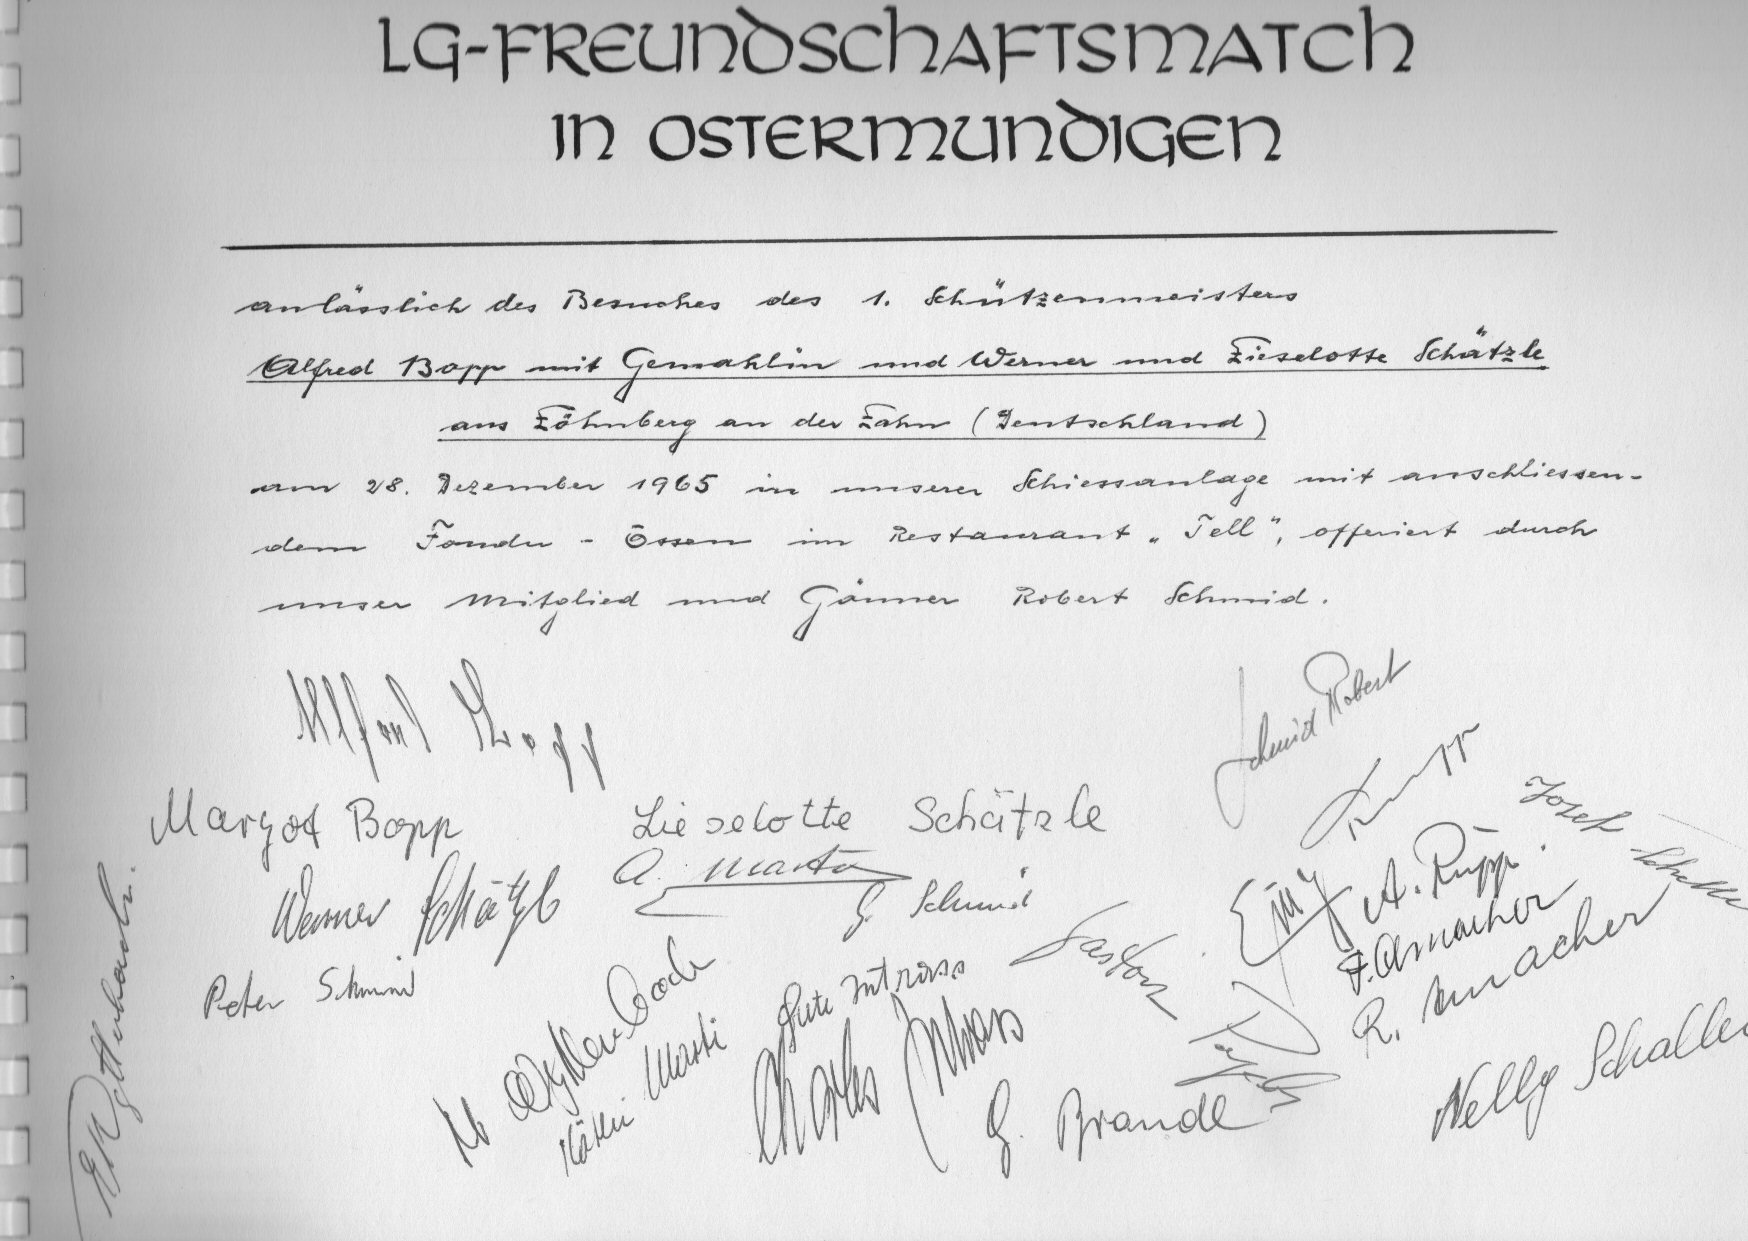 LG-FREUNDSCHAFTSMATCH
IN OSTERMUNDIGEN
anlässlich des Besuches des 1. Schützenmeisters
Alfred Bopp mit Gemahlin und Werner und Lieselotte Schätzle
aus Löhnberg an der Lahn (Deutschland)
am 28. Dezember 1965 in unserer Schiessanlage mit anschliessen-
dem Fondu - Essen im Restaurant „Tell", offeriert durch
unser Mitglied und Gönner Robert Schmid.
Alfred Bopp
Schmid Robert
Margot Bopp
Lieselotte Schätzle
Rupp
Josef
A. Marti
Werner Schätzle
G. Schmid
A. Rupp.
F. Amacher
R. Amacher
Peter Schmid
Gaston
Käthi Marti
Charles
G. Brandl
Nelly Schaller